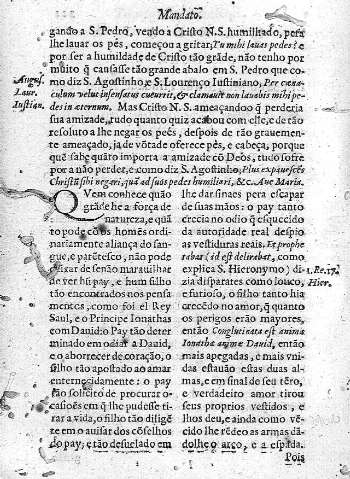 Mandato.
gando a S. Pedro, vendo a Cristo N.S. humilhado, pera
lhe lauar os pés, começou a gritar, Tu mihi lauas pedes? e
por ser a humildade de Cristo tão grāde, não tenho por
muito q̄ causasse tão grande abalo em S. Pedro que co-
mo diz S. Agostinho, e S. Lourenço Iustiniano, Per
velut insensatus & clamauit non lauabis mihi pe-
des in æternum. Mas Cristo N.S. ameaçandoo q̄ perderia
sua amizade, tudo quanto quiz acabou com elle, e de tão
resoluto a lhe negar os peés, despois de tão grauemente
ameaçado, ja de võtade oferece pés, e cabeça, porque
quē sabe quāto importa a amizade cō Deos, tudo sofre
por a não perder, e como diz S. Agostinho, Plus expauescēs
Christū sibi negari, quā ad suos pedes humiliari, &c. Aue Maria.
Angel.
Laur.
Iustian.
QVem conhece quāo
grāde he a força de
natureza, e quā
to pode cō os homēs ordi-
nariamente aliança do san-
gue, e parētesco, não pode
deixar de senão marauilhar
de ver hū pay, e hum filho
tão encontrados nos pensa-
mentos, como foi el Rey
Saul, e o Principe Ionathas
com Dauid: o Pay tão deter
minado em odiar a Dauid,
e o aborrecer de coração, o
filho tão apostado ao amar
enternecidamente: o pay
tão solicito de procurar o-
casioēs em q̄ lhe pudesse ti-
rar a vida, o filho tão diligē
te em o auisar dos cōselhos
do pay, e tão desuelado em
lhe dar sinaes pera escapar
de suas mãos: o pay tanto
crecia no odio q̄ esquecido
da autoridade real despio
as vestiduras reais. Et prophe
tabat (id est delirabat, como
explica S. Hieronymo) di-
zia disparates como louco,
e furioso, o filho tanto hia
crecēdo no amor, q̄ quanto
os perigos erão mayores,
então Conglutinata est anima
Ionathæ animæ Dauid, então
mais apegadas, e mais vni-
das estauão estas duas al-
mas, e em sinal de seu fēro,
e verdadeiro amor tirou
seus proprios vestidos, e
lhos deu, e ainda como vē-
cido lhe rēdeo as armas dā-
dolhe o arco, e a espada.
Pois
1. Re. 17.
Hier.